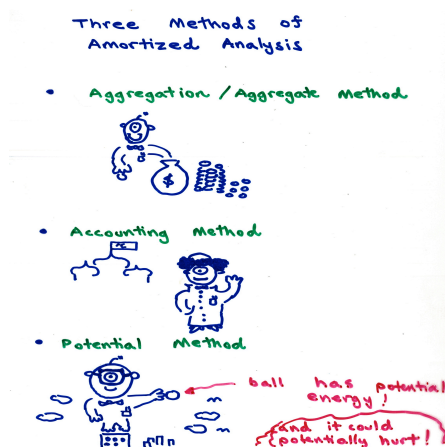 Three Methods of
Amortized Analysis
• Aggregation / Aggregate Method
$
• Accounting Method
• Potential Method
ball has potential
energy!
and it could
potentially hurt!